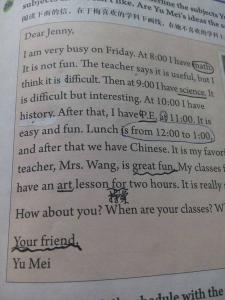 subjects
下面的信，在于梅喜欢的学科下画线，在她不喜欢的
Dear Jenny,
I am very busy on Friday. At 8:00 I have math.
It is not fun. The teacher says it is useful, but I
think it is difficult. Then at 9:00 I have science. It
is difficult but interesting. At 10:00 I have
history. After that, I have P.E. at 11:00. It is
easy and fun. Lunch is from 12:00 to 1:00,
and after that we have Chinese. It is my favori
teacher, Mrs. Wang, is great fun. My classes
have an art lesson for two hours. It is really
How about you? When are your classes? W
Your friend,
Yu Mei
schedule with the